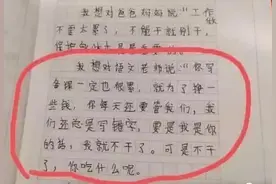 我想对爸爸妈妈说“工作
不要太累了,不能干就别干,
我想对语文老师说“你写
备课一定也很累,就为了挣一
些钱,你每天还要管我们,我
们还总是写错字,要是我是你
的话,我就不干了。可是不干
了,你吃什么呢。